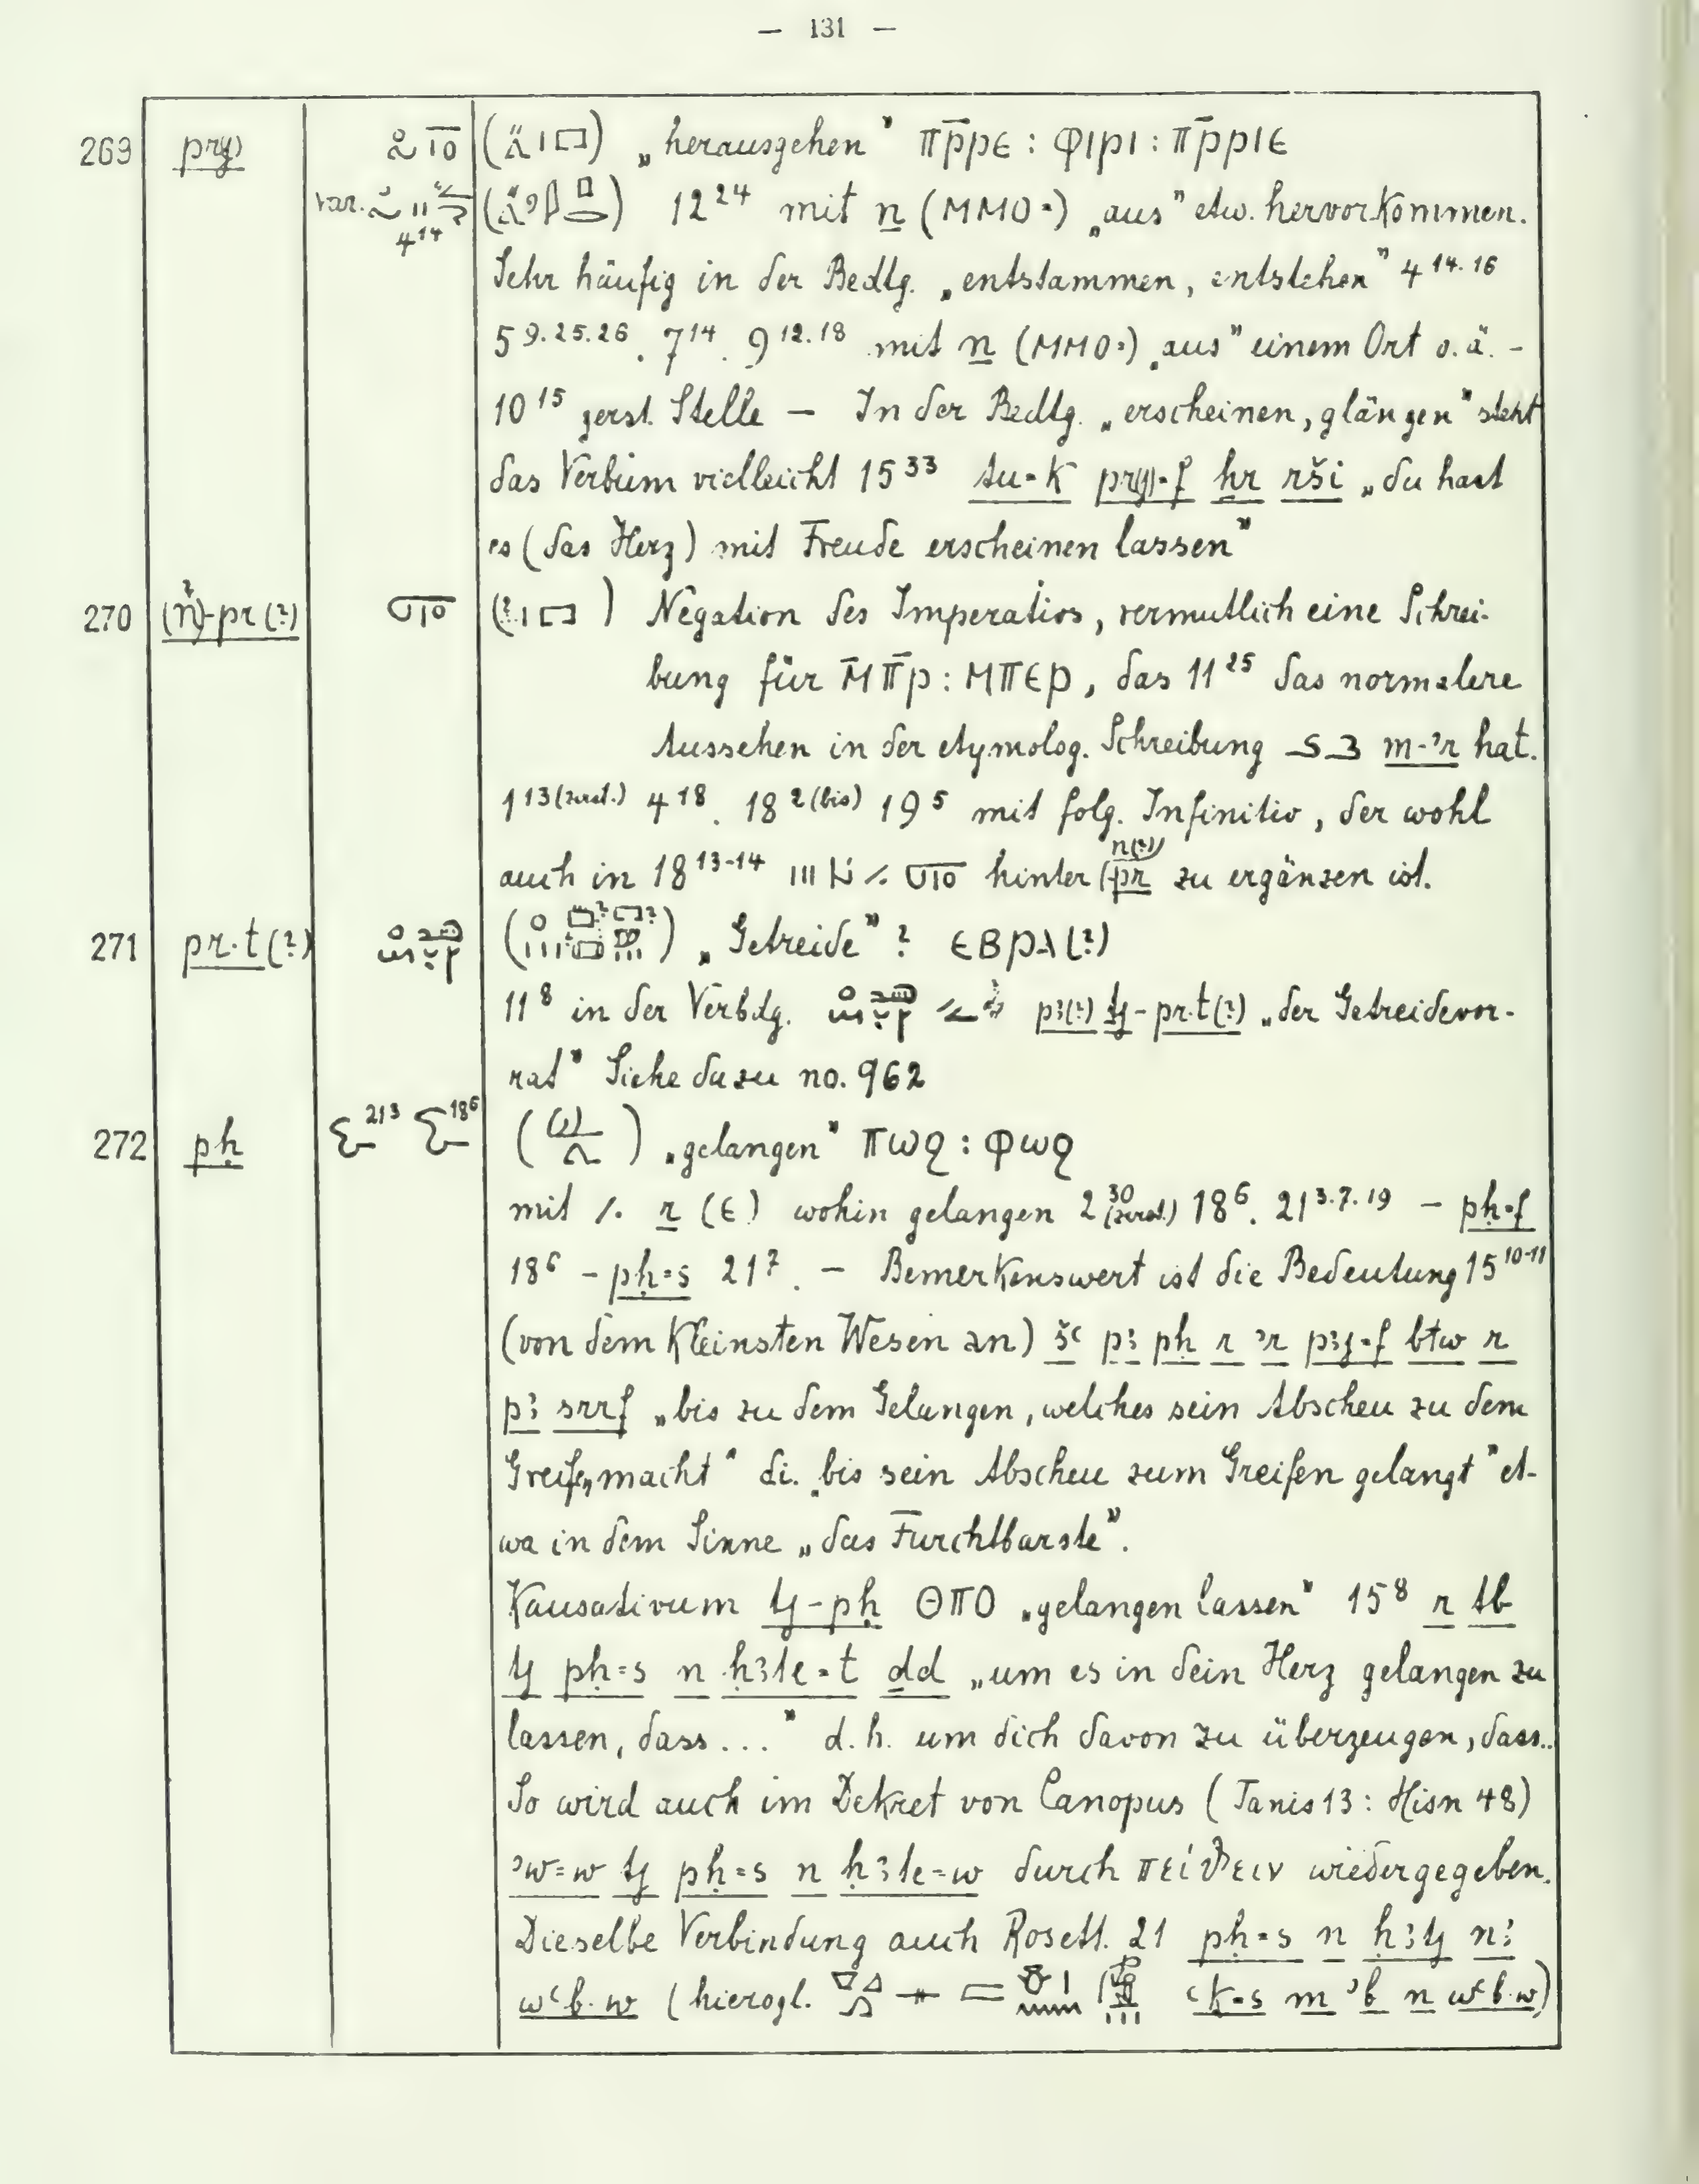 — 131 —
269 pry „herausgehen" ⲡⲣ̄ⲣⲉ : ⲫⲓⲣⲓ : ⲡⲣ̄ⲣⲓⲉ
var. 4¹⁴ 12²⁴ mit n (ⲙⲙⲟ⸗) „aus" etw. hervorkommen.
Sehr häufig in der Bedtg. „entstammen, entstehen" 4¹⁴·¹⁶
5⁹·²⁵·²⁶. 7¹⁴. 9¹²·¹⁸ mit n (ⲙⲙⲟ⸗) „aus" einem Ort o.ä. -
10¹⁵ zerst. Stelle — In der Bedtg. „erscheinen, glänzen" steht
das Verbum vielleicht 15³³ tu=k pry=f ḥr rši „du hast
es (das Herz) mit Freude erscheinen lassen"
270 (n)-pr(?) Negation des Imperativs, vermutlich eine Schrei-
bung für ⲙ̄ⲡ̄ⲣ : ⲙⲡⲉⲣ, das 11²⁵ das normalere
Aussehen in der etymolog. Schreibung m-ʾr hat.
1¹³⁽ᶻᵉʳˢᵗ·⁾ 4¹⁸. 18²⁽ᵇⁱˢ⁾ 19⁵ mit folg. Infinitiv, der wohl
auch in 18¹³⁻¹⁴ hinter (n(?))pr zu ergänzen ist.
271 pr.t(?) „Getreide"? ⲉⲃⲣⲁ(?)
11⁸ in der Verbdg. pꜣ(?) ty-pr.t(?) „der Getreidevor-
rat" Siehe dazu no. 962
272 pḥ 21³ 18⁶ „gelangen" ⲡⲱϩ : ⲫⲱϩ
mit r (ⲉ) wohin gelangen 2³⁰ (zerst.) 18⁶. 21³·⁷·¹⁹ — pḥ=f
18⁶ — pḥ=s 21⁷. — Bemerkenswert ist die Bedeutung 15¹⁰⁻¹¹
(von dem kleinsten Wesen an) šꜥ pꜣ pḥ r ʾr pꜣy=f btw r
pꜣ srrf „bis zu dem Gelangen, welches sein Abscheu zu dem
Greifen macht" di. „bis sein Abscheu zum Greifen gelangt" et-
wa in dem Sinne „das Furchtbarste".
Kausativum ty-pḥ ⲑⲡⲟ „gelangen lassen" 15⁸ r tb
ty pḥ=s n ḥꜣte=t ḏd „um es in dein Herz gelangen zu
lassen, dass..." d.h. um dich davon zu überzeugen, dass..
So wird auch im Dekret von Canopus (Tanis 13 : Hisn 48)
ʾw=w ty pḥ=s n ḥꜣte=w durch πείθειν wiedergegeben.
Dieselbe Verbindung auch Rosett. 21 pḥ=s n ḥꜣty nꜣ
wꜥb.w (hierogl. ꜥḳ=s m ʾb n wꜥb.w)